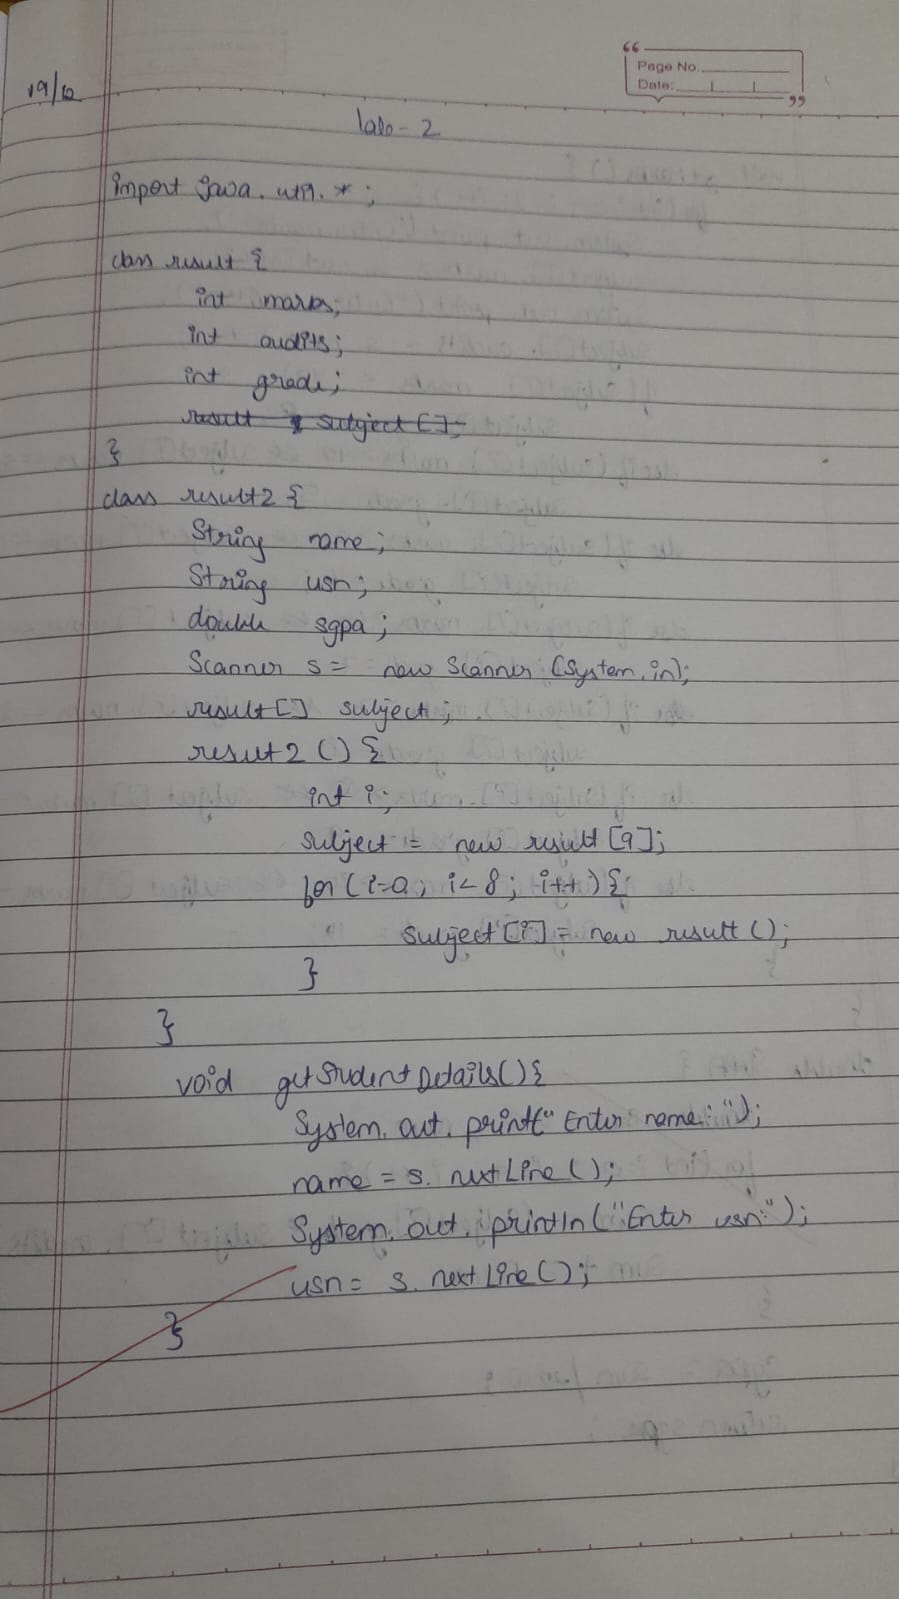 Page No.
Date:
19/12
lab-2
import java.util.*;
class result {
int marks;
int credits;
int grade;
result subject[];
}
class result2 {
String name;
String usn;
double sgpa;
Scanner s = new Scanner (System.in);
result[] subject;
result2 () {
int i;
subject = new result [9];
for (i=0; i<8; i++) {
subject[i] = new result ();
}
}
void getStudentDetails() {
System.out.print("Enter name:");
name = s.nextLine();
System.out.println("Enter usn:");
usn = s.nextLine();
}